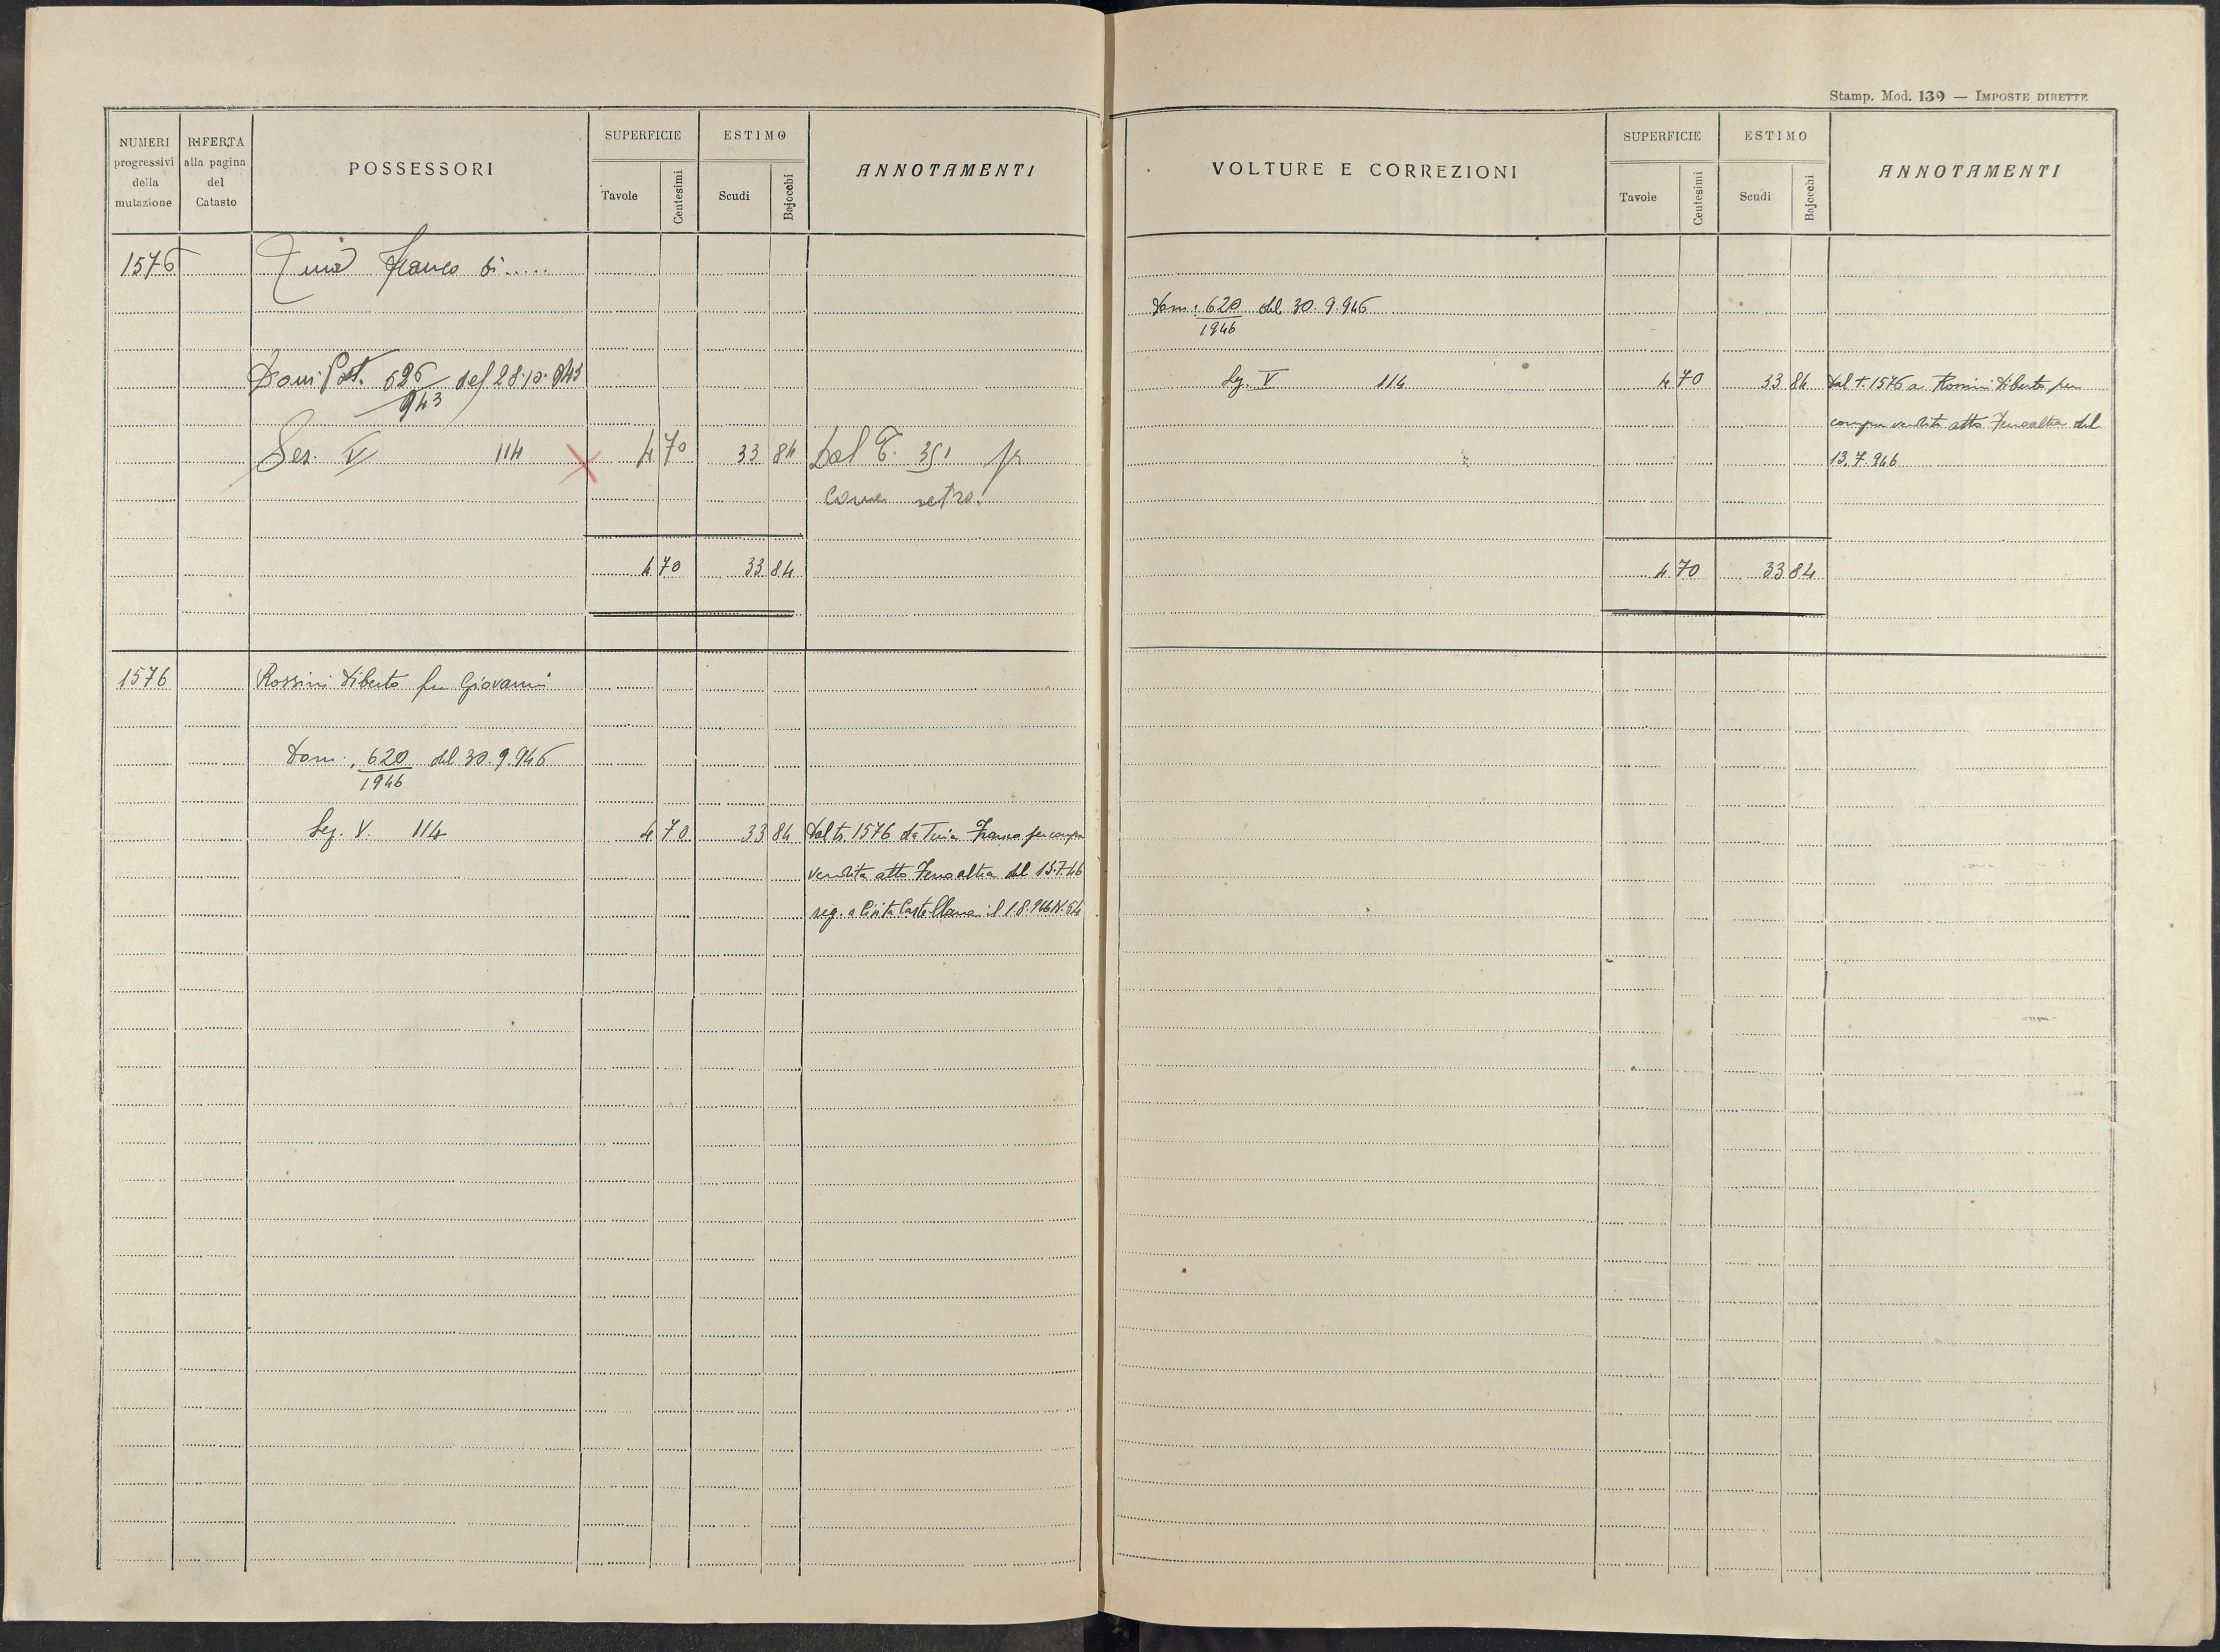 NUMERI progressivi della mutazione
RIFERTA alla pagina del Catasto
POSSESSORI
SUPERFICIE
Tavole
Centesimi
ESTIMO
Scudi
Bajocchi
ANNOTAMENTI
1576 Tuia Franco di .....
Dom: Pat. 626/943 del 28.10.943
Sez. V 114 X 4 70 33 84 Dal T. 351 per
Come retro.
4 70 33 84
1576 Rossini Liberto fu Giovanni
Dom. 620/1946 del 30.9.946
Sez. V. 114 4 70 33 84 Dal t. 1576 da Tuia Franco per compra
vendita atto Ferroaltea del 13.7.46
reg. a Civita Castellana il 1.8.946 N. 54
Stamp. Mod. 139 — IMPOSTE DIRETTE
VOLTURE E CORREZIONI
SUPERFICIE
Tavole
Centesimi
ESTIMO
Scudi
Bajocchi
ANNOTAMENTI
Dom: 620/1946 del 30.9.946
Sez. V 114 4 70 33 84 Dal t. 1576 a Rossini Liberto per
compra vendita atto Ferroaltea del
13.7.946
4 70 33 84